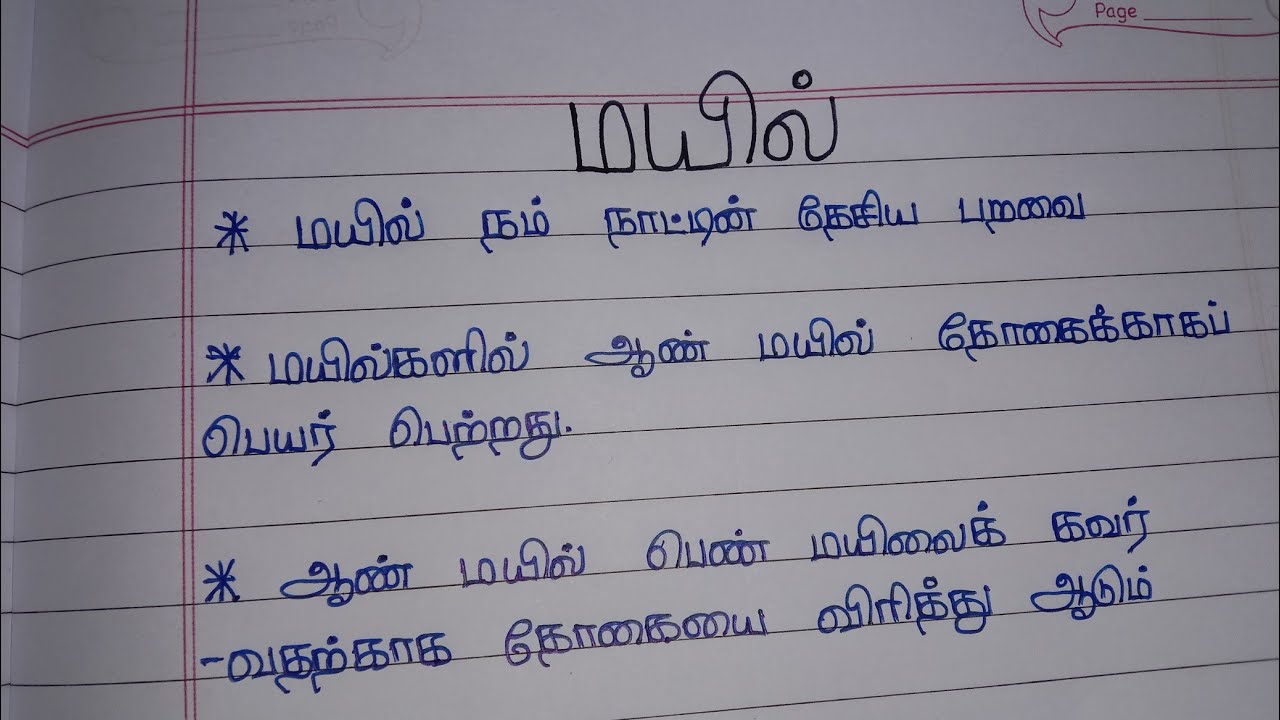 Page
மயில்
* மயில் நம் நாட்டின் தேசிய பறவை
* மயில்களில் ஆண் மயில் தோகைக்காகப்
பெயர் பெற்றது.
* ஆண் மயில் பெண் மயிலைக் கவர்
-வதற்காக தோகையை விரித்து ஆடும்